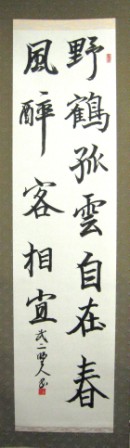 野鶴孤雲自在春
風醉客相宜